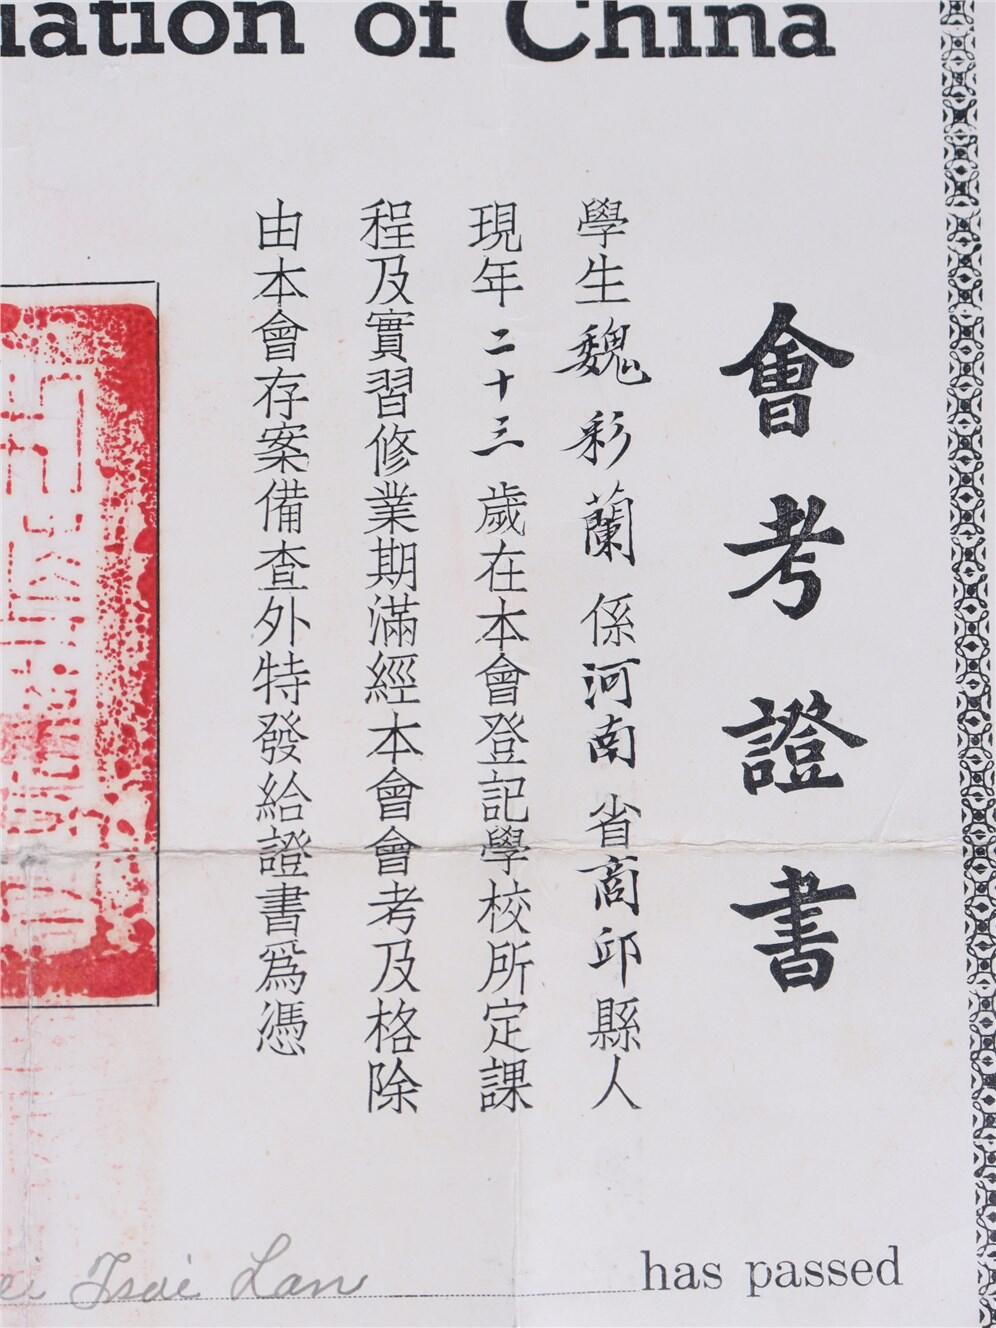 of China
會考證書
學生魏彩蘭係河南省商邱縣人
現年二十三歲在本會登記學校所定課
程及實習修業期滿經本會會考及格除
由本會存案備查外特發給證書爲憑
Tsai Lan has passed